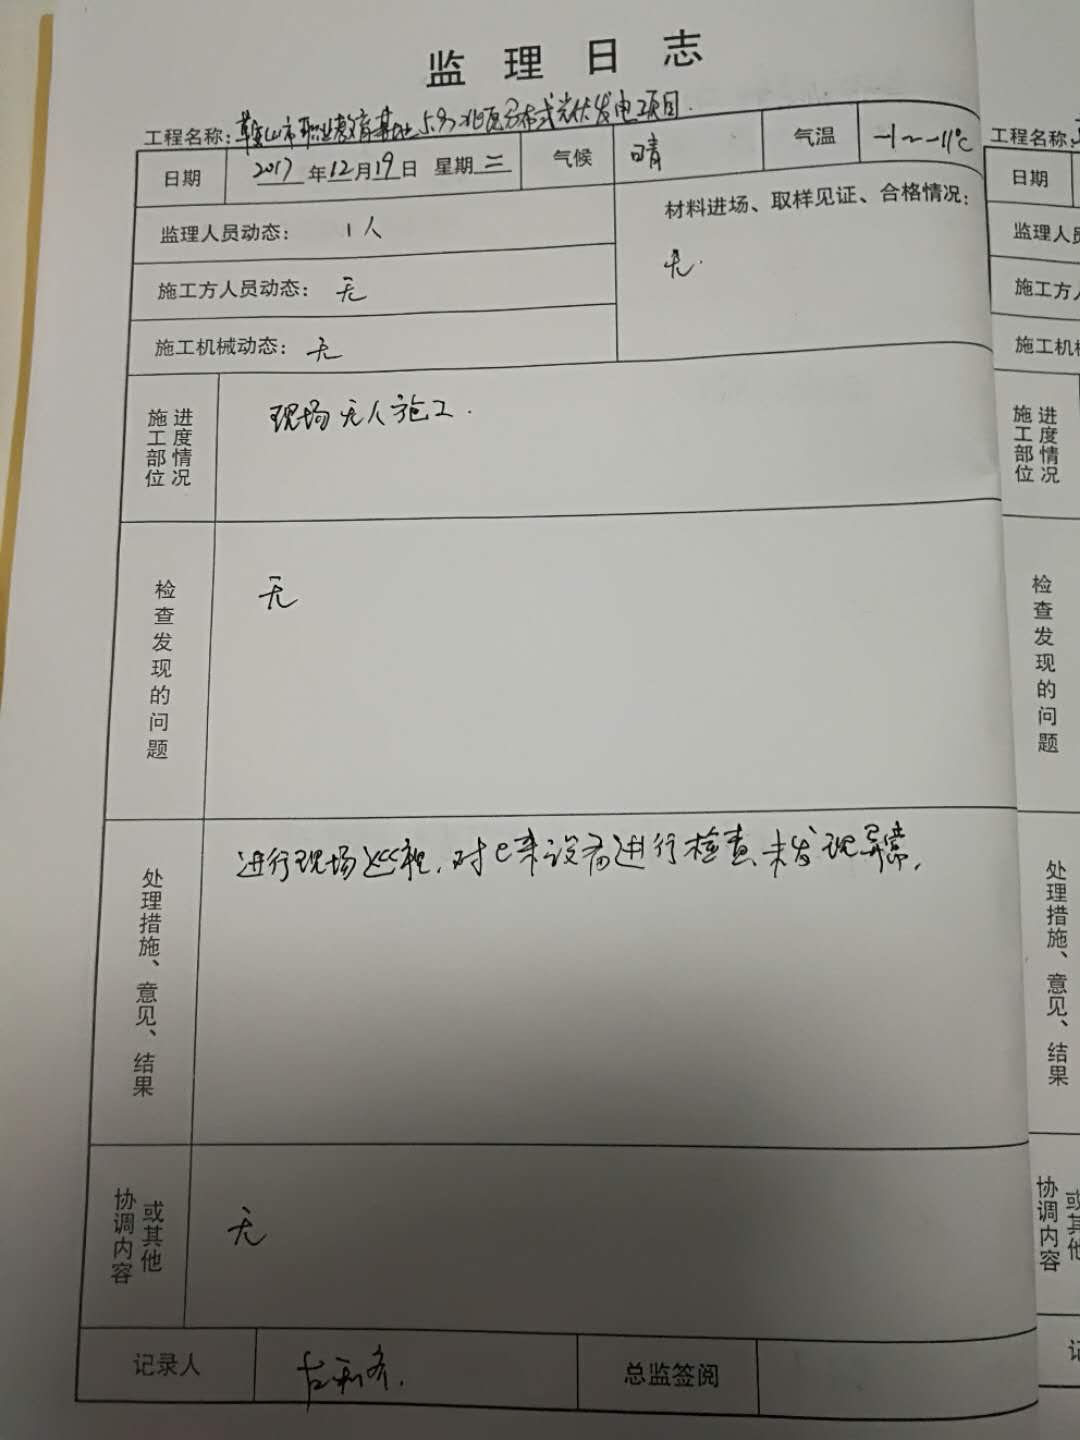 监理日志
工程名称: 鞍山市职业教育基地5.9兆瓦分布式光伏发电项目.
日期 2017年12月19日 星期二 气候 晴 气温 -1~-11℃
监理人员动态: 1人
材料进场、取样见证、合格情况:
无.
施工方人员动态: 无
施工机械动态: 无
施工部位 进度情况
现场无人施工.
检查发现的问题
无
处理措施、意见、结果
进行现场巡视,对已来设备进行检查未发现异常,
协调内容 或其他
无
记录人 总监签阅
工程名称:
日期
监理人员
施工方人
施工机械
施工部位 进度情况
检查发现的问题
处理措施、意见、结果
协调内容 或其他
记